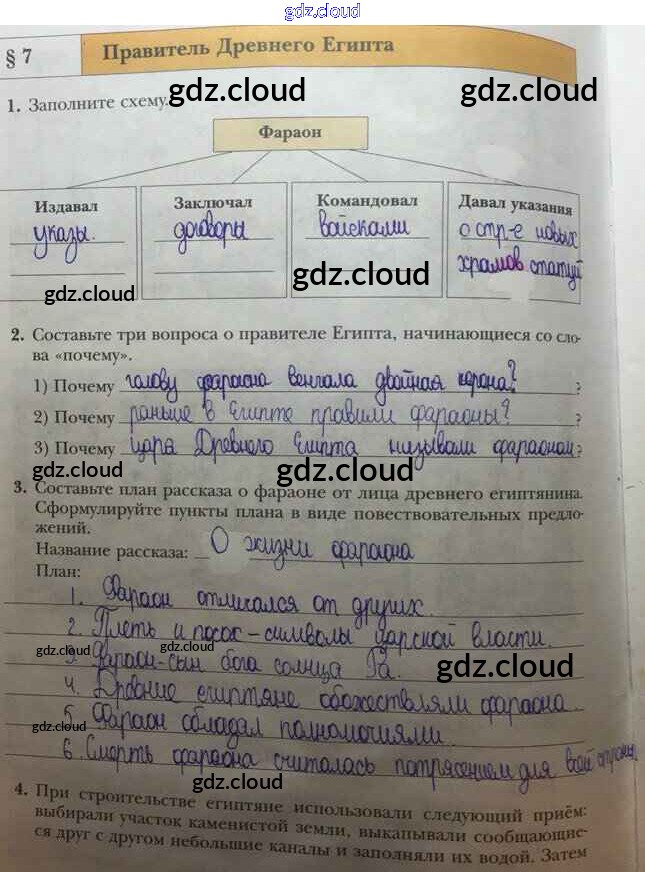 gdz.cloud
§ 7
Правитель Древнего Египта
1. Заполните схему.
gdz.cloud
gdz.cloud
Фараон
Издавал
указы.
Заключал
договоры
Командовал
войсками
Давал указания
о стр-е новых
храмов статуй
gdz.cloud
gdz.cloud
2. Составьте три вопроса о правителе Египта, начинающиеся со сло-
ва «почему».
1) Почему голову фараона венчала двойная корона? ?
2) Почему раньше в Египте правили фараоны? ?
3) Почему царя Древнего Египта называли фараоном ?
gdz.cloud
gdz.cloud
3. Составьте план рассказа о фараоне от лица древнего египтянина.
Сформулируйте пункты плана в виде повествовательных предло-
жений.
gdz.cloud
Название рассказа: О жизни фараона
План:
1. Фараон отличался от других.
2. Плеть и посох - символы царской власти.
gdz.cloud
3. Фараон-сын бога солнца Ра.
gdz.cloud
4. Древние египтяне обожествляли фараона.
gdz.cloud
5. Фараон обладал полномочиями.
6. Смерть фараона считалась потрясением для всей страны.
gdz.cloud
4. При строительстве египтяне использовали следующий приём:
выбирали участок каменистой земли, выкапывали сообщающие-
ся друг с другом небольшие каналы и заполняли их водой. Затем